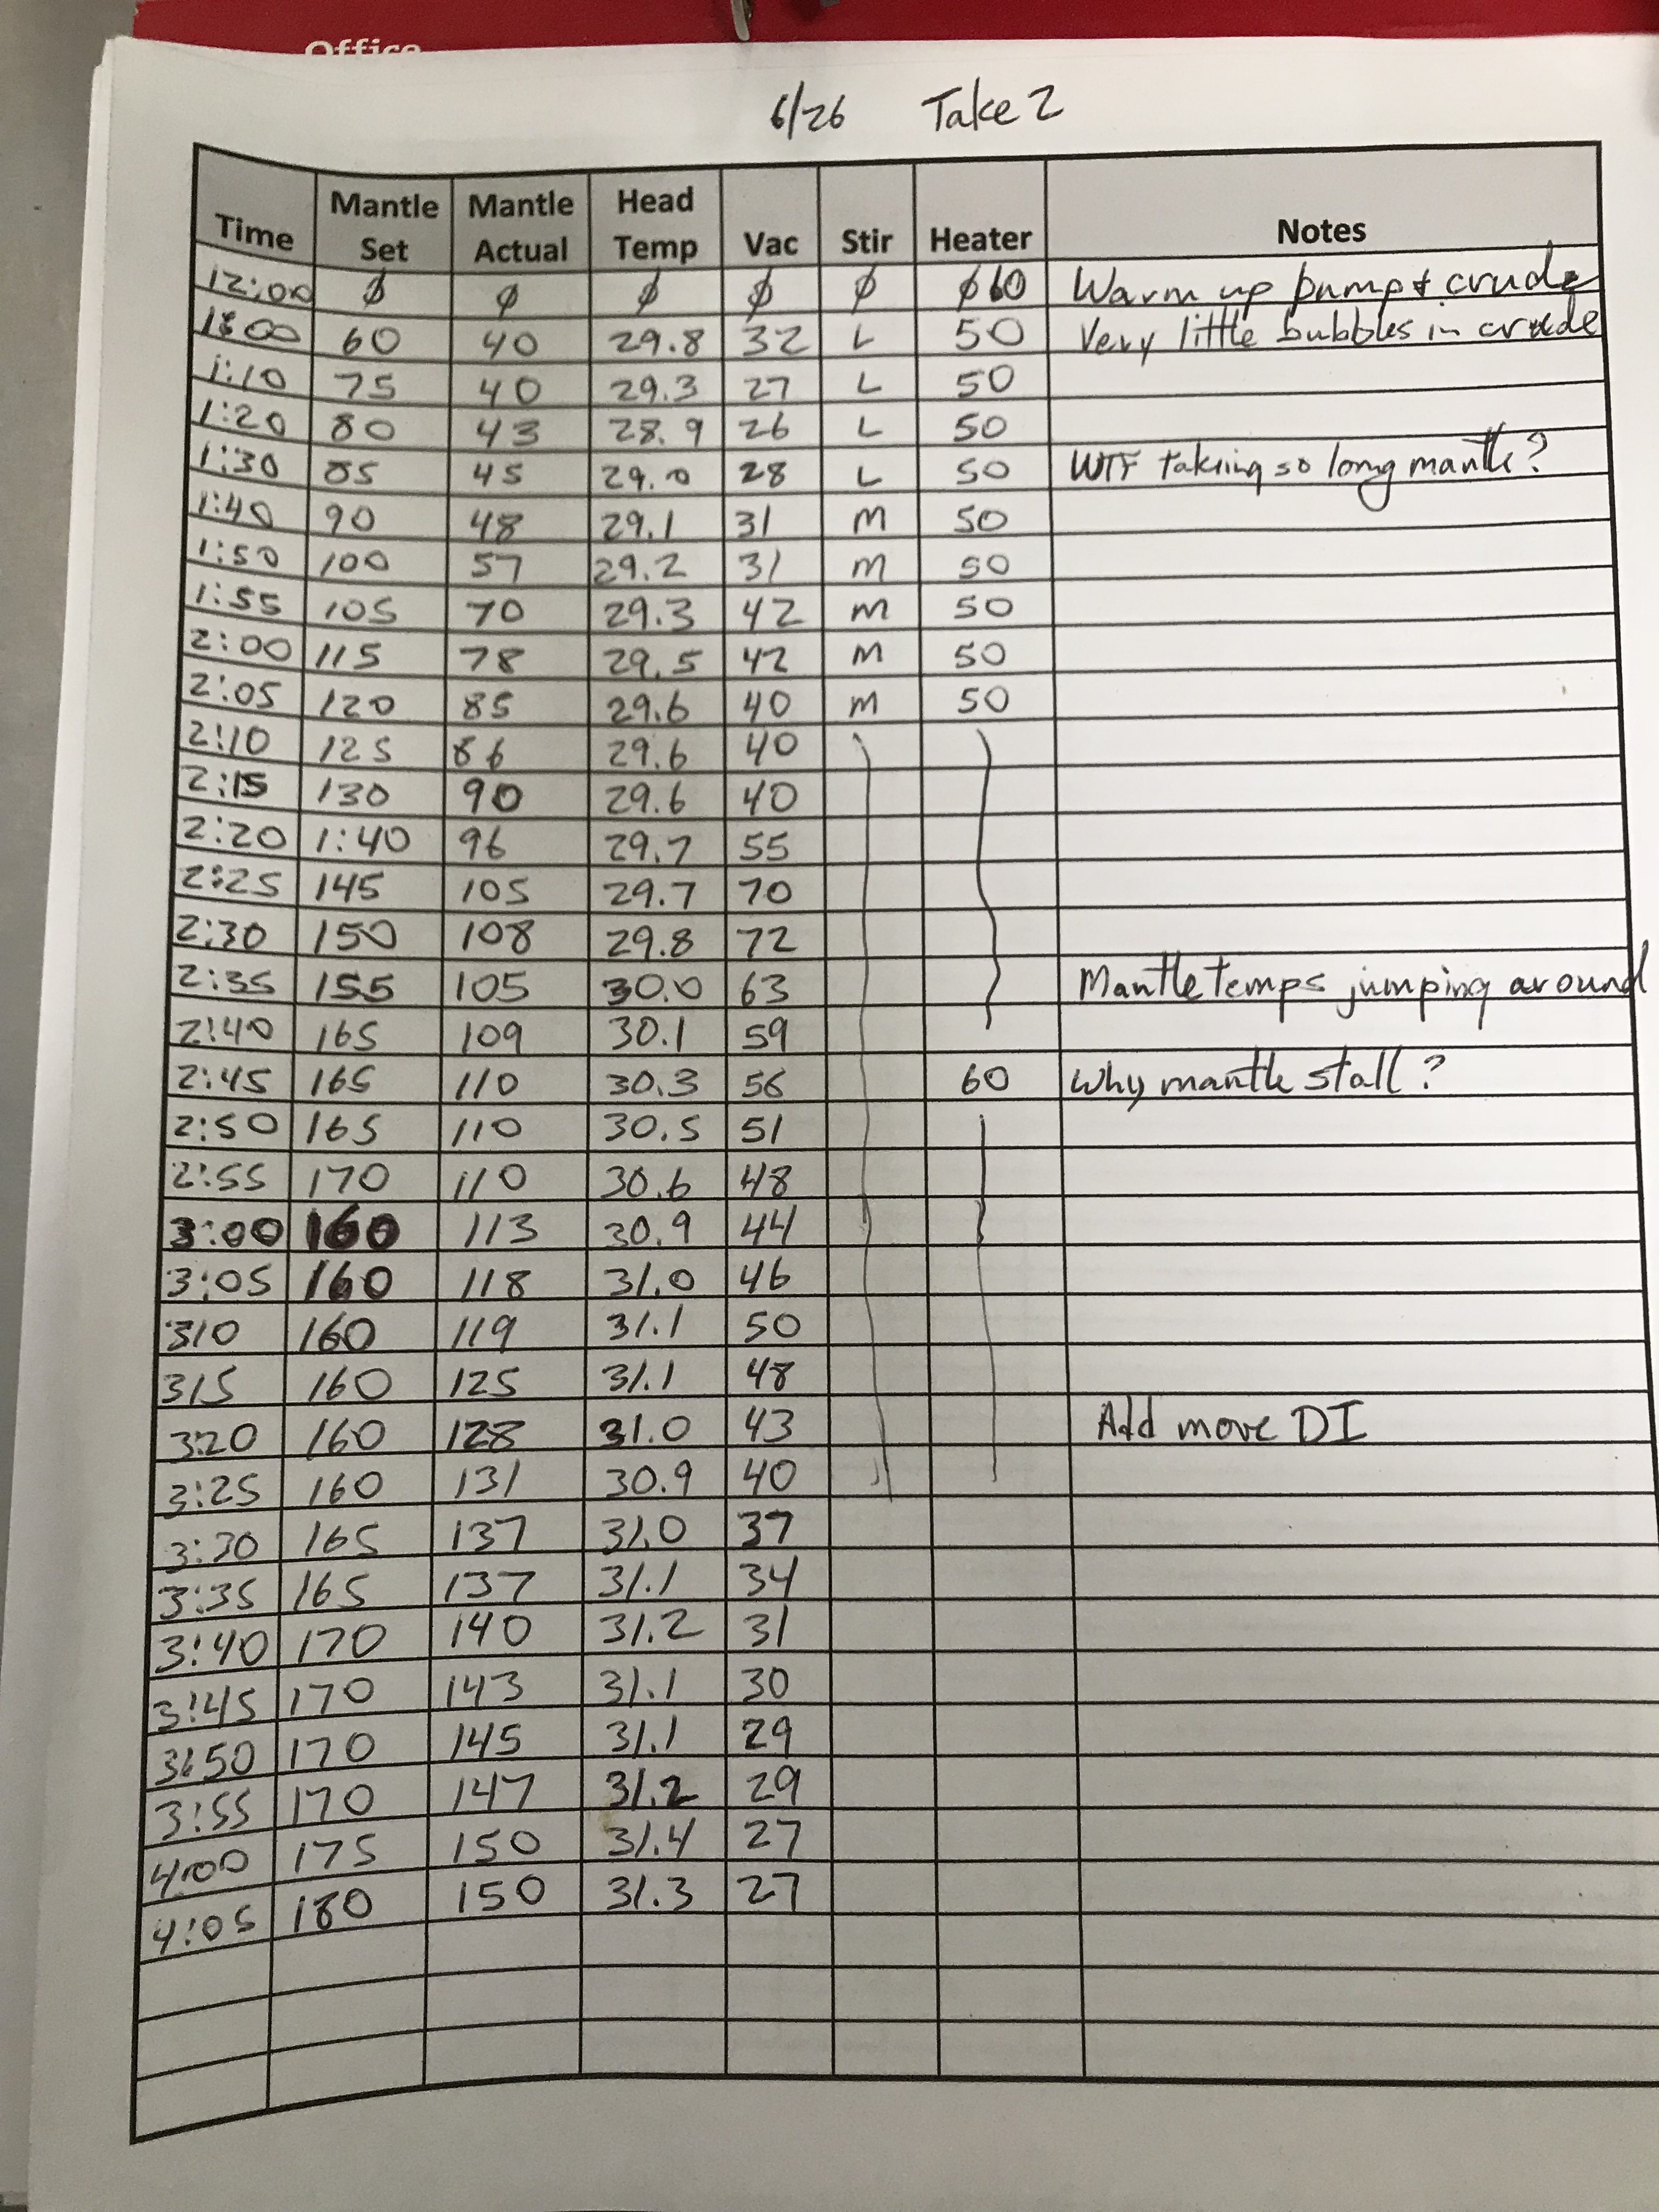 Office
6/26 Take 2
Time Mantle Set Mantle Actual Head Temp Vac Stir Heater Notes
12:00 ϕ ϕ ϕ ϕ ϕ ϕ60 Warm up pump & crude
1:00 60 40 29.8 32 L 50 Very little bubbles in crude
1:10 75 40 29.3 27 L 50
1:20 80 43 28.9 26 L 50
1:30 85 45 29.0 28 L 50 WTF taking so long mantle?
1:40 90 48 29.1 31 M 50
1:50 100 57 29.2 31 M 50
1:55 105 70 29.3 42 M 50
2:00 115 78 29.5 42 M 50
2:05 120 85 29.6 40 M 50
2:10 125 86 29.6 40
2:15 130 90 29.6 40
2:20 1:40 96 29.7 55
2:25 145 105 29.7 70
2:30 150 108 29.8 72
2:35 155 105 30.0 63 Mantle temps jumping around
2:40 165 109 30.1 59
2:45 165 110 30.3 56 60 Why mantle stall?
2:50 165 110 30.5 51
2:55 170 110 30.6 48
3:00 160 113 30.9 44
3:05 160 118 31.0 46
310 160 119 31.1 50
315 160 125 31.1 48
3:20 160 128 31.0 43 Add more DI
3:25 160 131 30.9 40
3:30 165 137 31.0 37
3:35 165 137 31.1 34
3:40 170 140 31.2 31
3:45 170 143 31.1 30
3:50 170 145 31.1 29
3:55 170 147 31.2 29
4:00 175 150 31.4 27
4:05 180 150 31.3 27